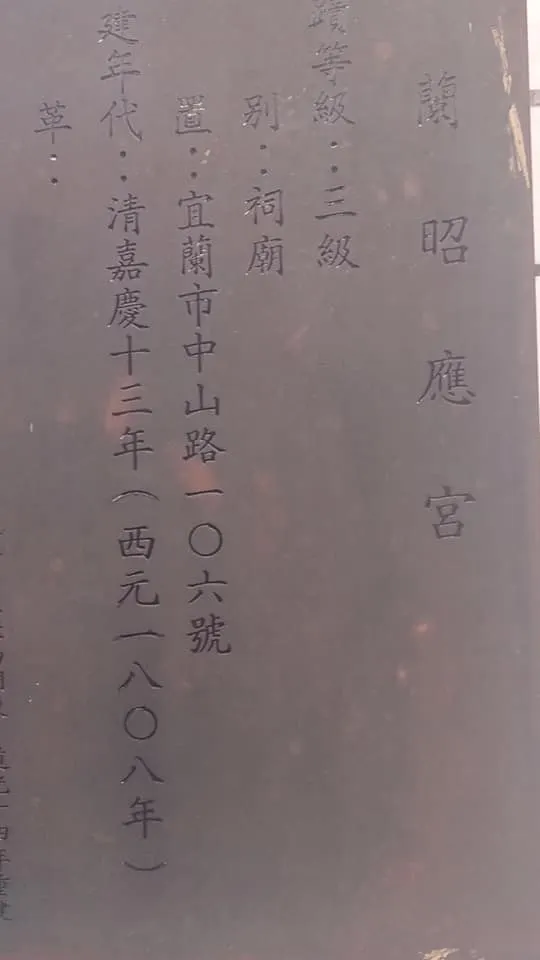 蘭昭應宮
蹟等級：三級
別：祠廟
置：宜蘭市中山路一〇六號
建年代：清嘉慶十三年（西元一八〇八年）
革：